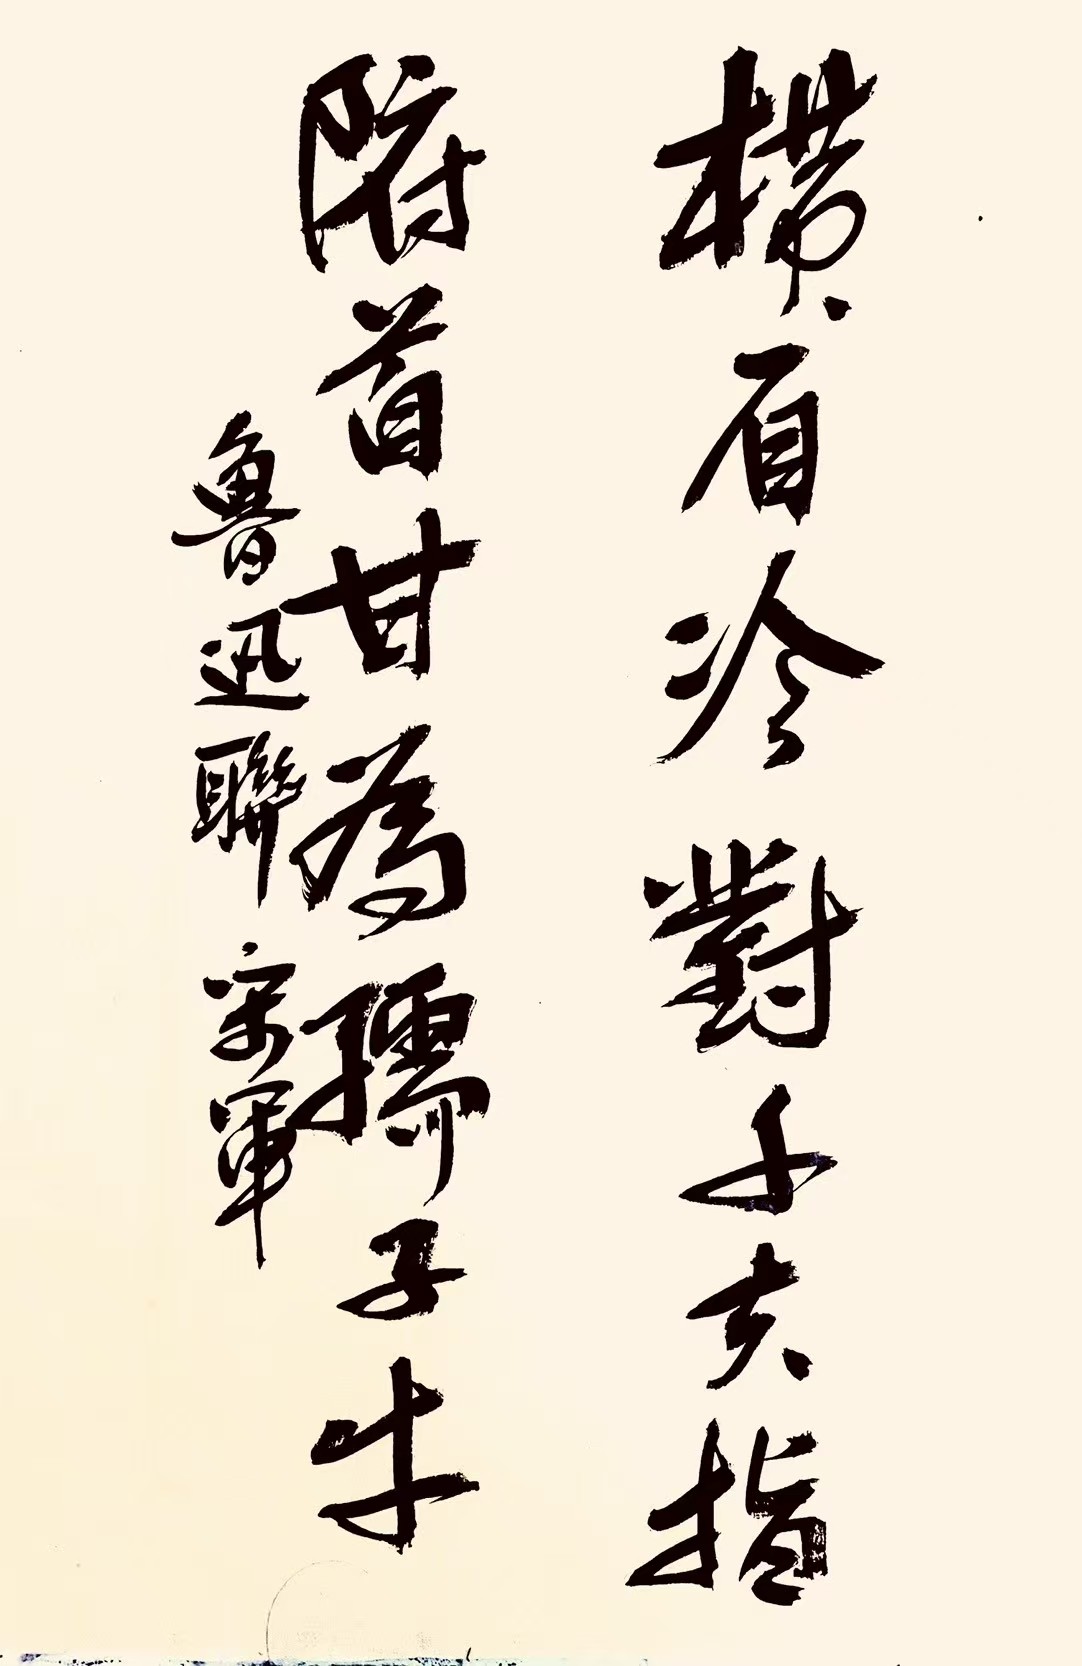 横眉冷對千夫指
俯首甘為孺子牛
魯迅聯 軍